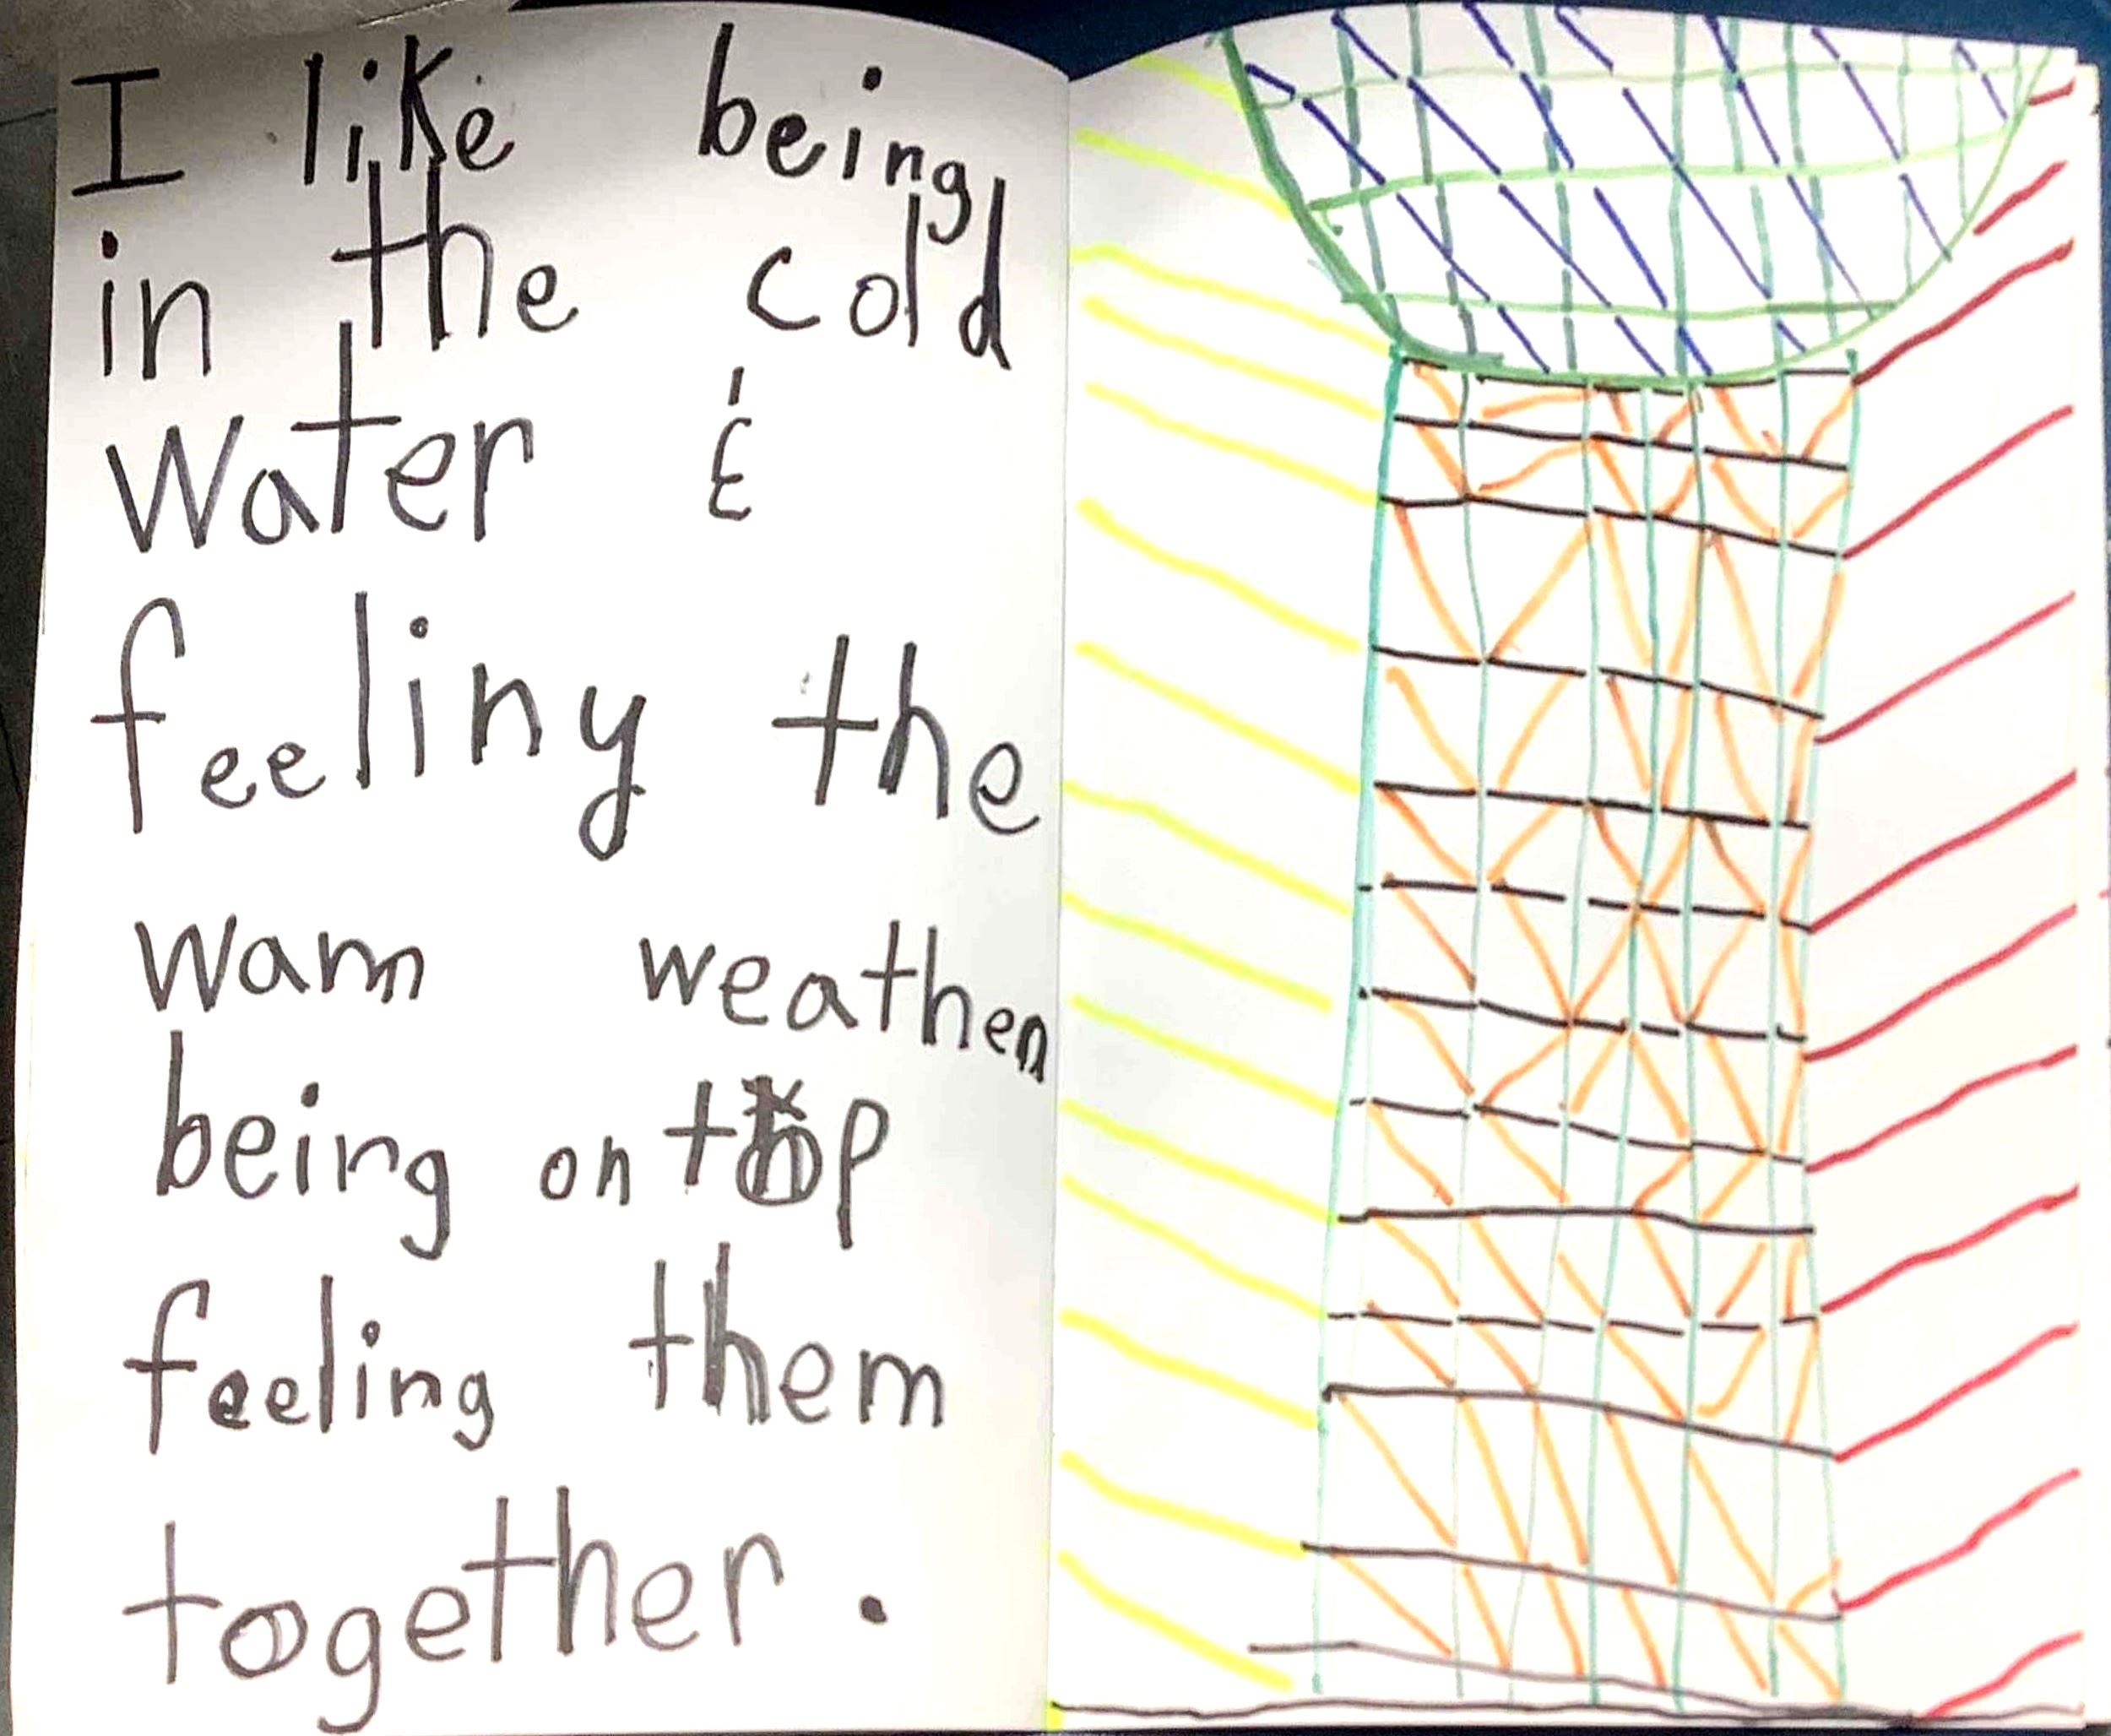 I like being
in the cold
water &
feeling the
warm weather
being on top
feeling them
together.